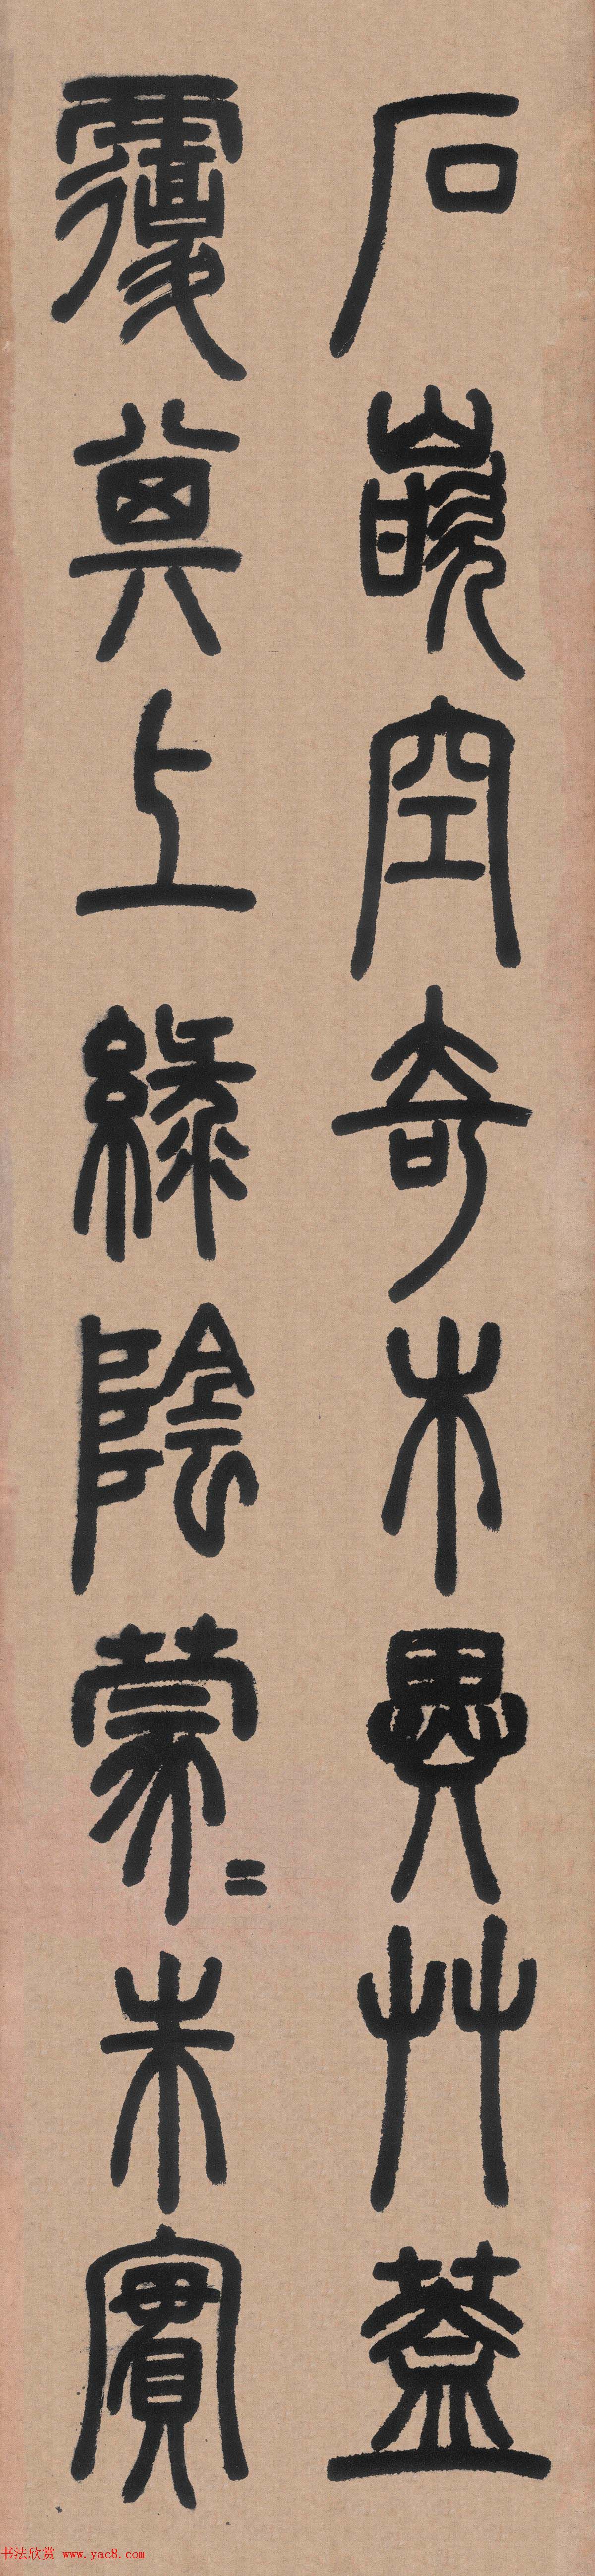 石嵌空奇木異艸蓋
覆其上綠陰蒙〻朱實
书法欣赏 www.yac8.com